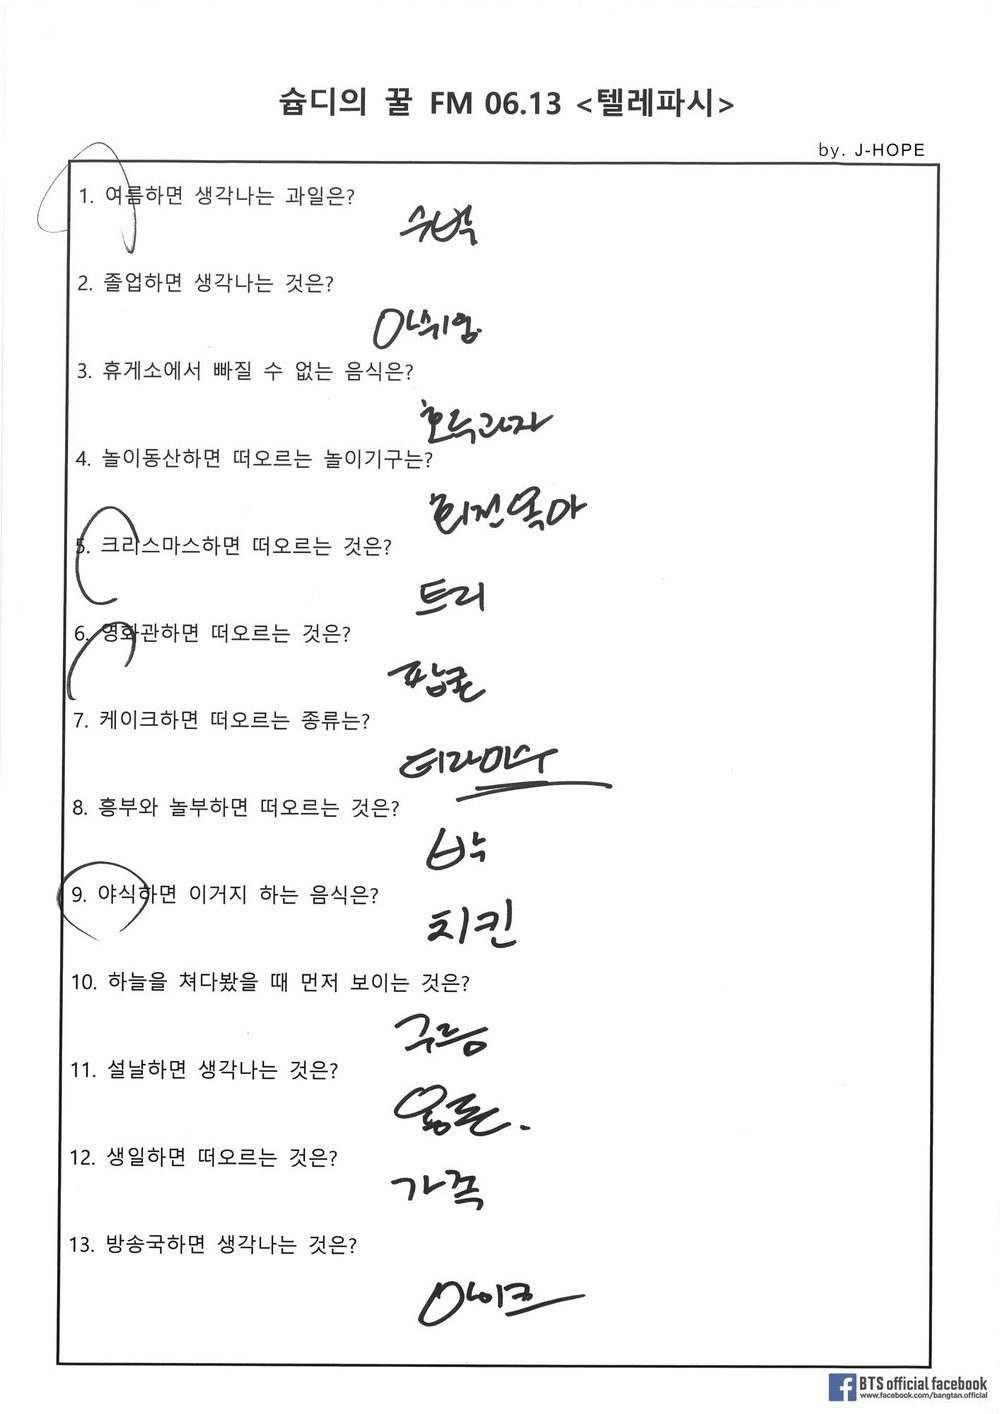 슙디의 꿀 FM 06.13 <텔레파시>
by. J-HOPE
1. 여름하면 생각나는 과일은?
수박
2. 졸업하면 생각나는 것은?
아쉬움.
3. 휴게소에서 빠질 수 없는 음식은?
호두과자
4. 놀이동산하면 떠오르는 놀이기구는?
회전목마
5. 크리스마스하면 떠오르는 것은?
트리
6. 영화관하면 떠오르는 것은?
팝콘
7. 케이크하면 떠오르는 종류는?
티라미수
8. 흥부와 놀부하면 떠오르는 것은?
박
9. 야식하면 이거지 하는 음식은?
치킨
10. 하늘을 쳐다봤을 때 먼저 보이는 것은?
구름
11. 설날하면 생각나는 것은?
용돈.
12. 생일하면 떠오르는 것은?
가족
13. 방송국하면 생각나는 것은?
마이크
BTS official facebook
www.facebook.com/bangtan.official